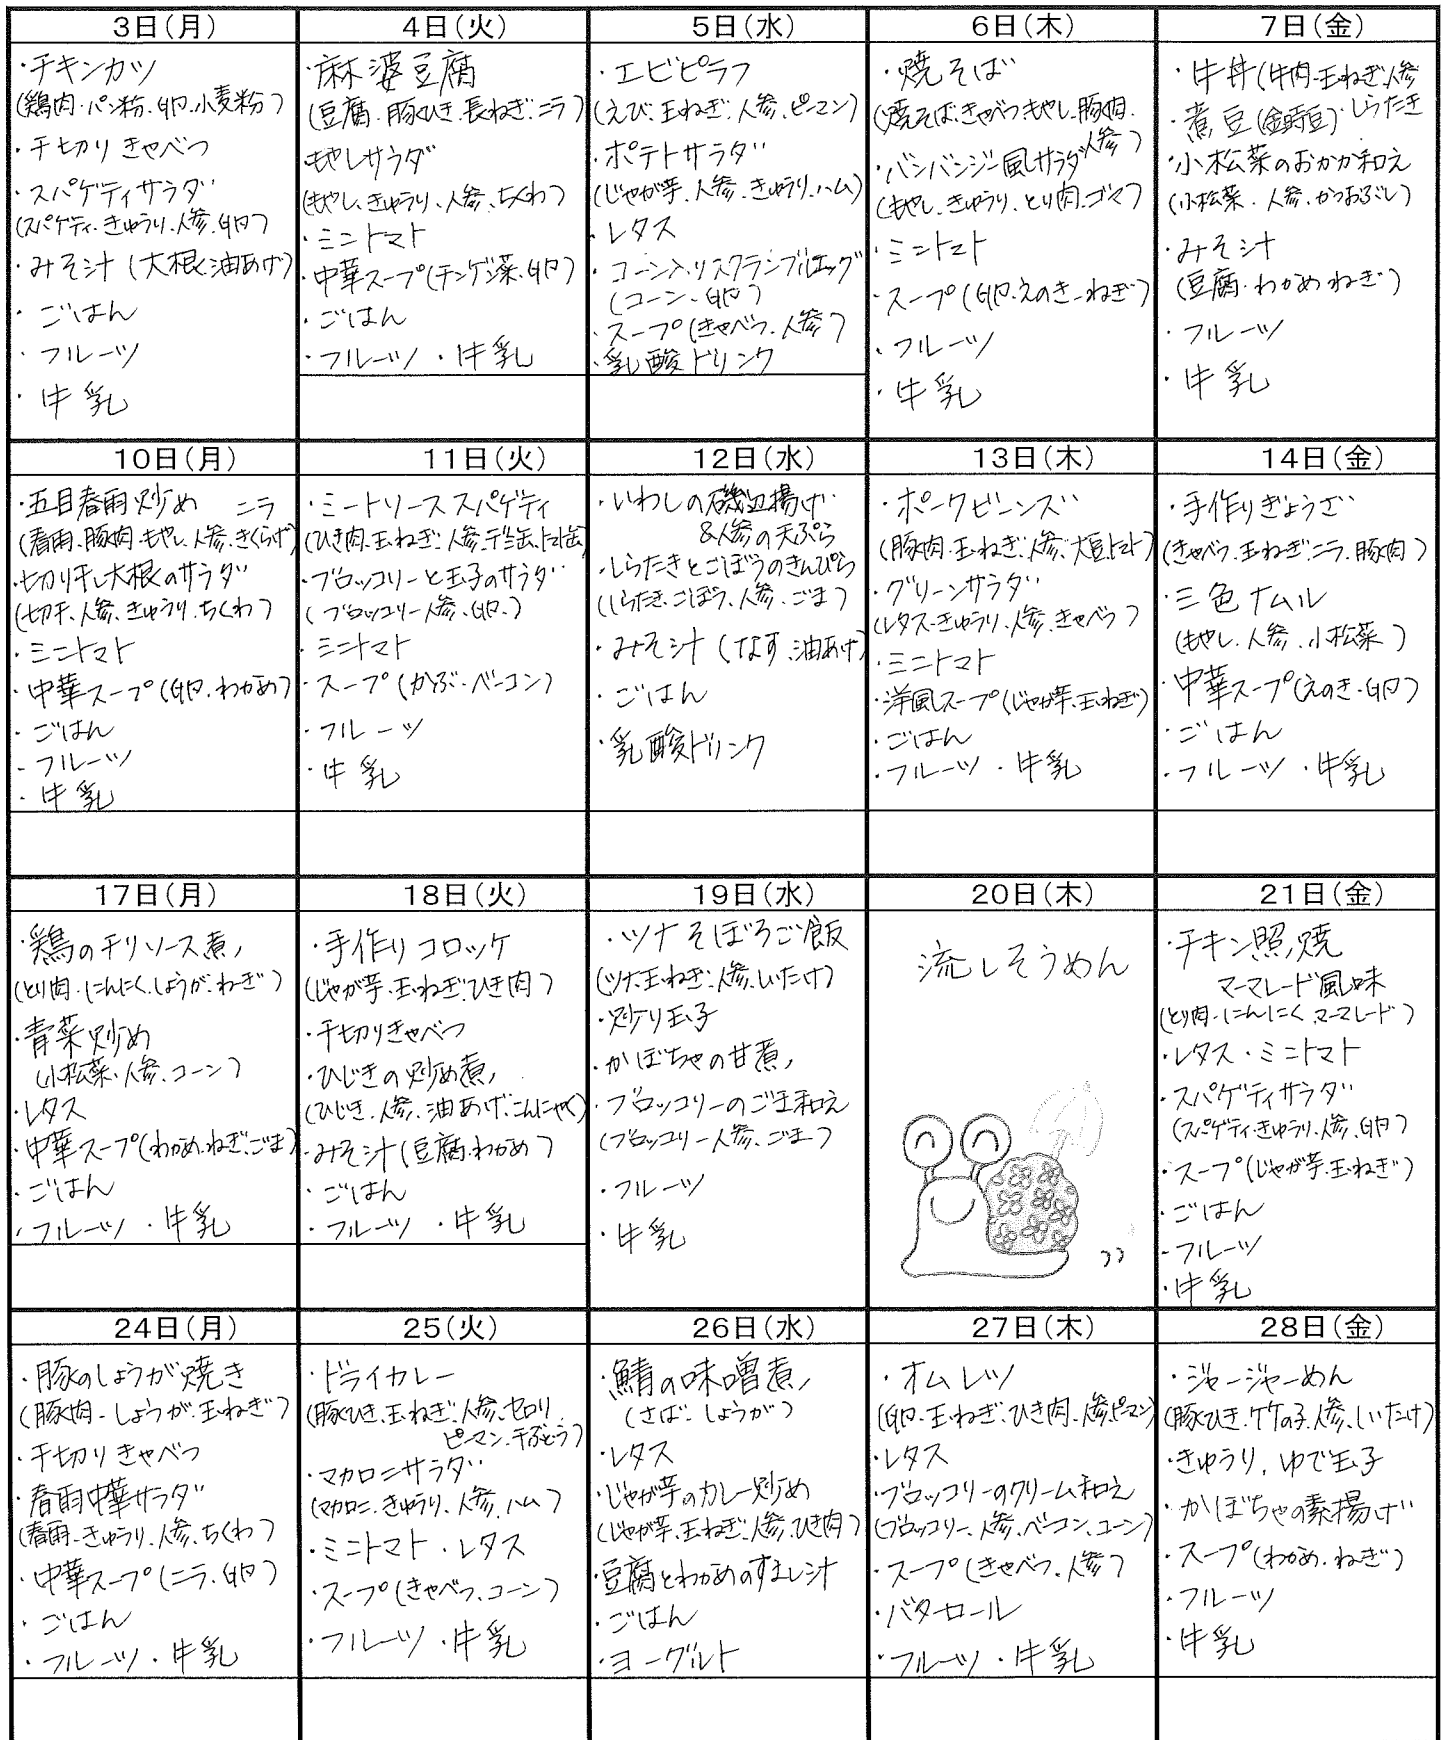 3日(月)
・チキンカツ
(鶏肉・パン粉・卵・小麦粉)
・千切りきゃべつ
・スパゲティサラダ
(スパゲティ・きゅうり・人参・卵)
・みそ汁(大根・油あげ)
・ごはん
・フルーツ
・牛乳
4日(火)
・麻婆豆腐
(豆腐・豚ひき・長ねぎ・ニラ)
・もやしサラダ
(もやし、きゅうり、人参、ちくわ)
・ミニトマト
・中華スープ(チンゲン菜・卵)
・ごはん
・フルーツ・牛乳
5日(水)
・エビピラフ
(えび、玉ねぎ、人参、ピーマン)
・ポテトサラダ
(じゃが芋、人参、きゅうり、ハム)
・レタス
・コーン入りスクランブルエッグ
(コーン・卵)
・スープ(きゃべつ、人参)
・乳酸ドリンク
6日(木)
・焼そば
(焼そば、きゃべつ、もやし、豚肉、
人参)
・バンバンジー風サラダ
(もやし、きゅうり、とり肉、ゴマ)
・ミニトマト
・スープ(卵・えのき・ねぎ)
・フルーツ
・牛乳
7日(金)
・牛丼(牛肉・玉ねぎ・人参
・しらたき
・煮豆(金時豆)
・小松菜のおかか和え
(小松菜・人参・かつおぶし)
・みそ汁
(豆腐・わかめ・ねぎ)
・フルーツ
・牛乳
10日(月)
・五目春雨炒め ニラ
(春雨、豚肉・もやし、人参、きくらげ)
・切り干し大根のサラダ
(切干、人参、きゅうり、ちくわ)
・ミニトマト
・中華スープ(卵・わかめ)
・ごはん
・フルーツ
・牛乳
11日(火)
・ミートソーススパゲティ
(ひき肉、玉ねぎ、人参、デミ缶、トマト缶)
・ブロッコリーと玉子のサラダ
(ブロッコリー、人参、卵、)
・ミニトマト
・スープ(かぶ・ベーコン)
・フルーツ
・牛乳
12日(水)
・いわしの磯辺揚げ
&人参の天ぷら
・しらたきとごぼうのきんぴら
(しらたき、ごぼう、人参、ごま)
・みそ汁(なす、油あげ)
・ごはん
・乳酸ドリンク
13日(木)
・ポークビーンズ
(豚肉・玉ねぎ・人参・大豆・トマト)
・グリーンサラダ
(レタス・きゅうり、人参、きゃべつ)
・ミニトマト
・洋風スープ(じゃが芋・玉ねぎ)
・ごはん
・フルーツ・牛乳
14日(金)
・手作りぎょうざ
(きゃべつ、玉ねぎ・ニラ、豚肉)
・三色ナムル
(もやし、人参、小松菜)
・中華スープ(えのき・卵)
・ごはん
・フルーツ・牛乳
17日(月)
・鶏のチリソース煮
(とり肉・にんにく、しょうが、ねぎ)
・青菜炒め
(小松菜・人参、コーン)
・レタス
・中華スープ(わかめ、ねぎ、ごま)
・ごはん
・フルーツ・牛乳
18日(火)
・手作りコロッケ
(じゃが芋・玉ねぎ、ひき肉)
・千切りきゃべつ
・ひじきの炒め煮
(ひじき、人参、油あげ、こんにゃく)
・みそ汁(豆腐・わかめ)
・ごはん
・フルーツ・牛乳
19日(水)
・ツナそぼろご飯
(ツナ、玉ねぎ、人参、しいたけ)
・炒り玉子
・かぼちゃの甘煮
・ブロッコリーのごま和え
(ブロッコリー、人参、ごま)
・フルーツ
・牛乳
20日(木)
流しそうめん
21日(金)
・チキン照焼
マーマレード風味
(とり肉・にんにく、マーマレード)
・レタス・ミニトマト
・スパゲティサラダ
(スパゲティ、きゅうり、人参、卵)
・スープ(じゃが芋・玉ねぎ)
・ごはん
・フルーツ
・牛乳
24日(月)
・豚のしょうが焼き
(豚肉・しょうが・玉ねぎ)
・千切りきゃべつ
・春雨中華サラダ
(春雨・きゅうり、人参、ちくわ)
・中華スープ(ニラ・卵)
・ごはん
・フルーツ・牛乳
25(火)
・ドライカレー
(豚ひき、玉ねぎ、人参、セロリ、
ピーマン・干ぶどう)
・マカロニサラダ
(マカロニ、きゅうり、人参、ハム)
・ミニトマト・レタス
・スープ(きゃべつ、コーン)
・フルーツ・牛乳
26日(水)
・鯖の味噌煮
(さば・しょうが)
・レタス
・じゃが芋のカレー炒め
(じゃが芋、玉ねぎ、人参、ひき肉)
・豆腐とわかめのすまし汁
・ごはん
・ヨーグルト
27日(木)
・オムレツ
(卵・玉ねぎ、ひき肉・人参、ピーマン)
・レタス
・ブロッコリーのクリーム和え
(ブロッコリー、人参、ベーコン、コーン)
・スープ(きゃべつ、人参)
・バターロール
・フルーツ・牛乳
28日(金)
・ジャージャーめん
(豚ひき、竹の子、人参、しいたけ)
・きゅうり、ゆで玉子
・かぼちゃの素揚げ
・スープ(わかめ、ねぎ)
・フルーツ
・牛乳